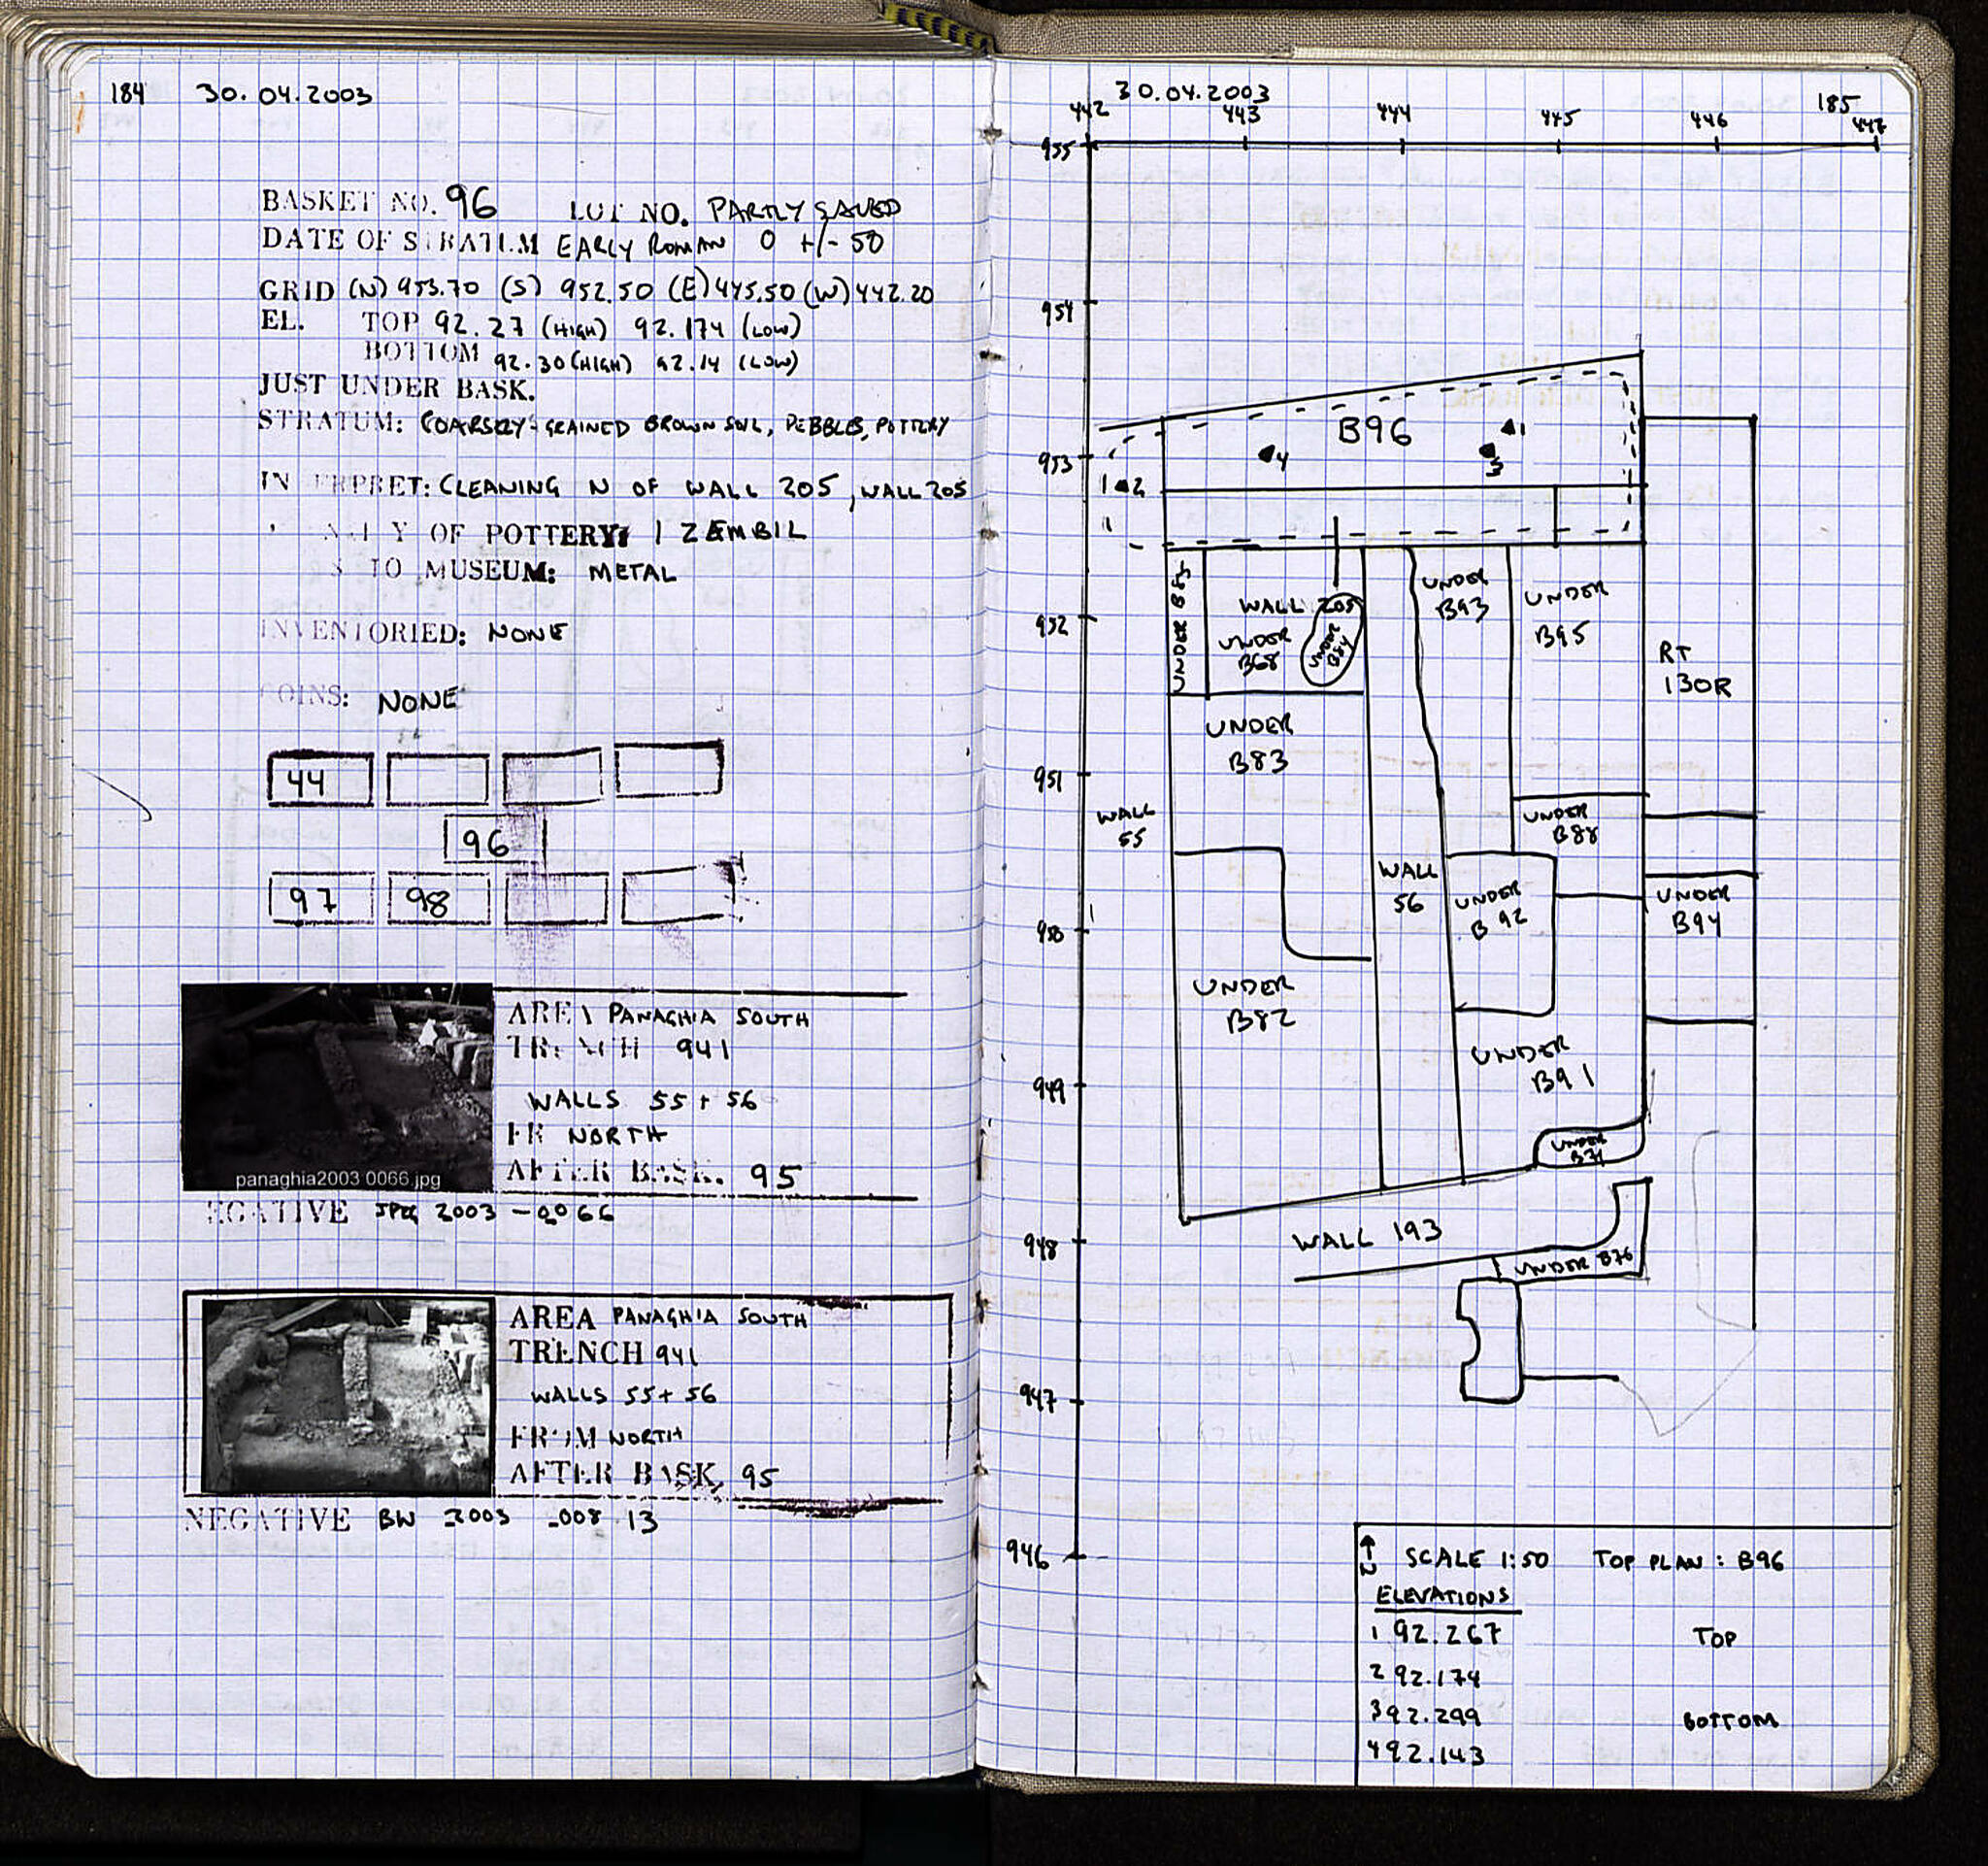 184 30.04.2003
BASKET NO. 96 LOT NO. PARTLY SAVED
DATE OF STRATUM EARLY ROMAN 0 +/- 50
GRID (N) 953.70 (S) 952.50 (E) 445.50 (W) 442.20
EL. TOP 92.27 (HIGH) 92.174 (LOW)
BOTTOM 92.30 (HIGH) 92.14 (LOW)
JUST UNDER BASK.
STRATUM: COARSELY-GRAINED BROWN SOIL, PEBBLES, POTTERY
INTERPRET: CLEANING N OF WALL 205, WALL 205
Y OF POTTERY: 1 ZEMBIL
TO MUSEUM: METAL
INVENTORIED: NONE
COINS: NONE
44
96
97 98
AREA PANAGHIA SOUTH
TRENCH 941
WALLS 55 + 56
FR NORTH
AFTER BASK. 95
panaghia2003 0066.jpg
NEGATIVE JPEG 2003 -0066
AREA PANAGHIA SOUTH
TRENCH 941
WALLS 55 + 56
FROM NORTH
AFTER BASK. 95
NEGATIVE BW 2003 -008 13
30.04.2003 185
442 443 444 445 446 447
955
954
953
952
951
950
949
948
947
946
B96
1
4
3
2
UNDER B85
WALL 205
UNDER B68
UNDER B84
UNDER B93
UNDER B95
RT 130R
UNDER B83
WALL 55
UNDER B88
WALL 56
UNDER B92
UNDER B94
UNDER B82
UNDER B91
UNDER B71
WALL 193
UNDER B76
N SCALE 1:50 TOP PLAN: B96
ELEVATIONS
1 92.267 TOP
2 92.174
3 92.299 BOTTOM
4 92.143